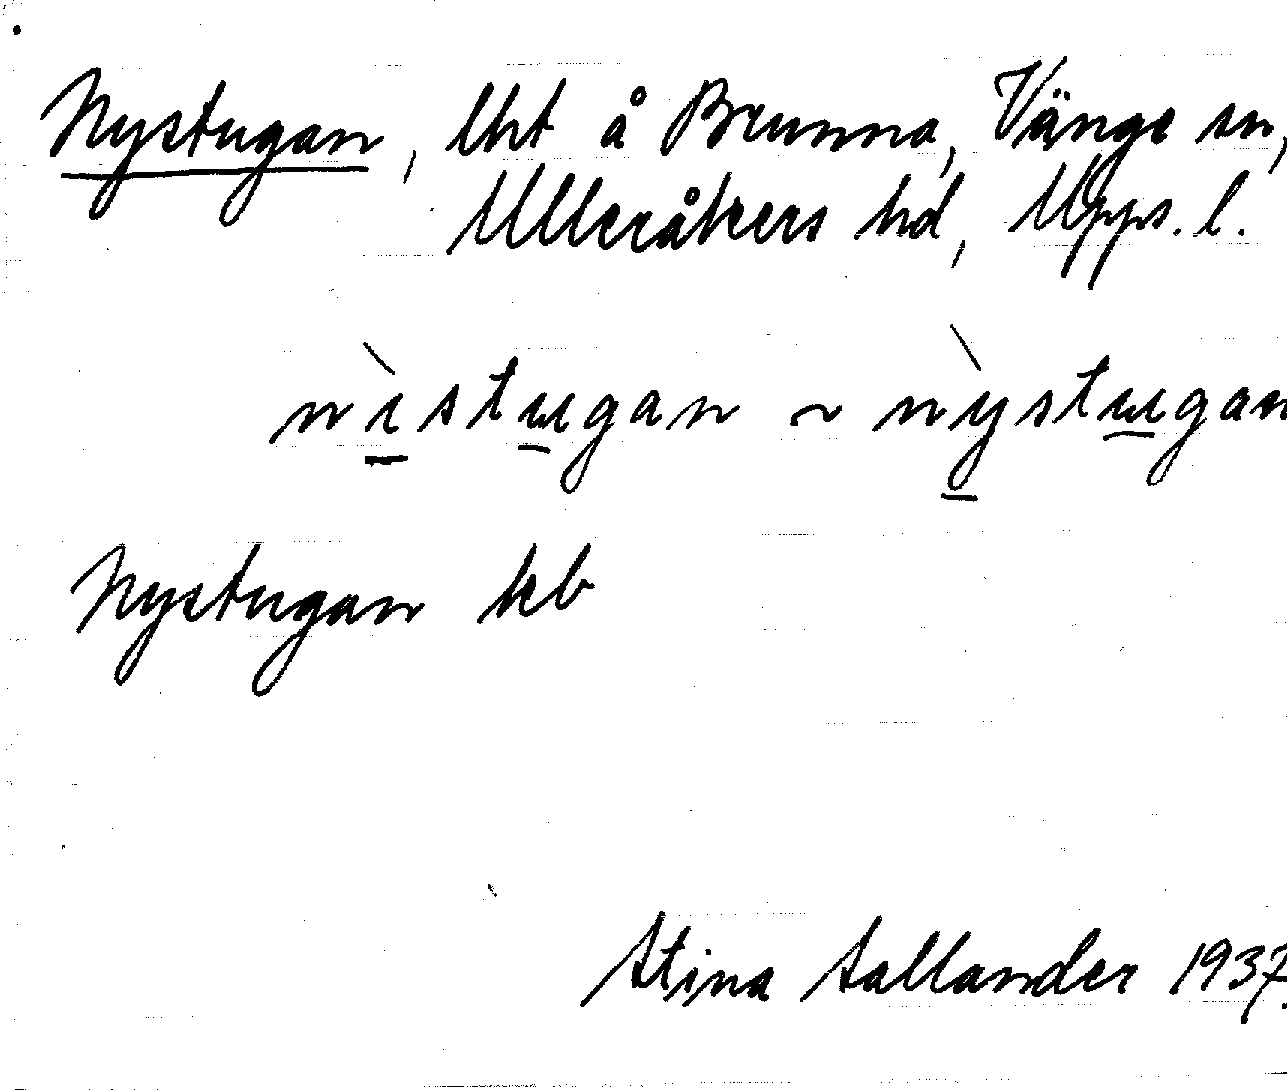 Nystugan, lht å Brunna, Vänge sn,
Ulleråkers hd, Upps. l.
nìstugan ~ nỳstugan
Nystugan kb
Stina Sallander 1937.